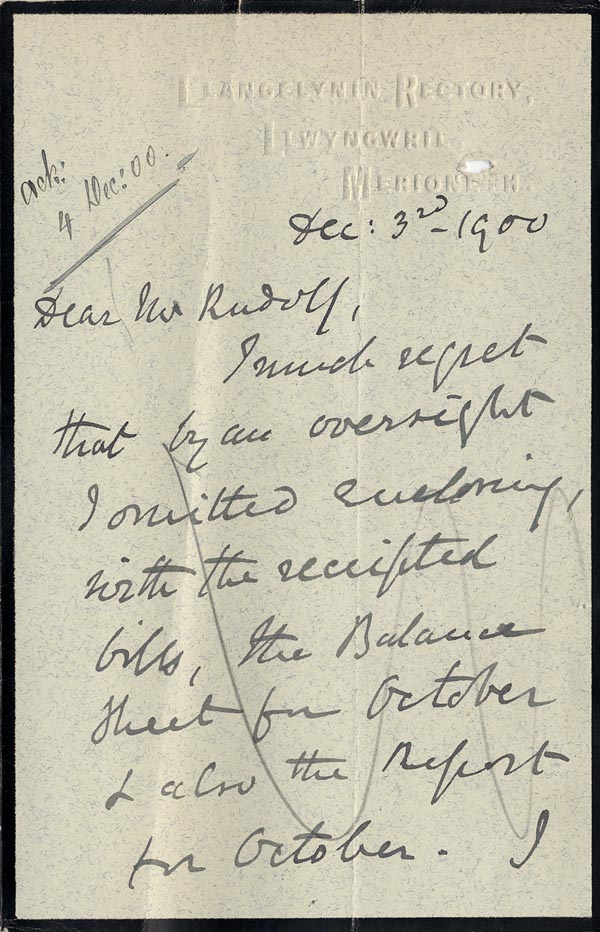 LLANGELYNIN RECTORY,
LLWYNGWRIL,
MERIONETH.
ack:
4 Dec: 00.
Dec: 3rd - 1900
Dear Mr Rudolf,
I much regret
that by an oversight
I omitted enclosing,
with the receipted
bills, the Balance
Sheet for October
& also the Report
for October. I